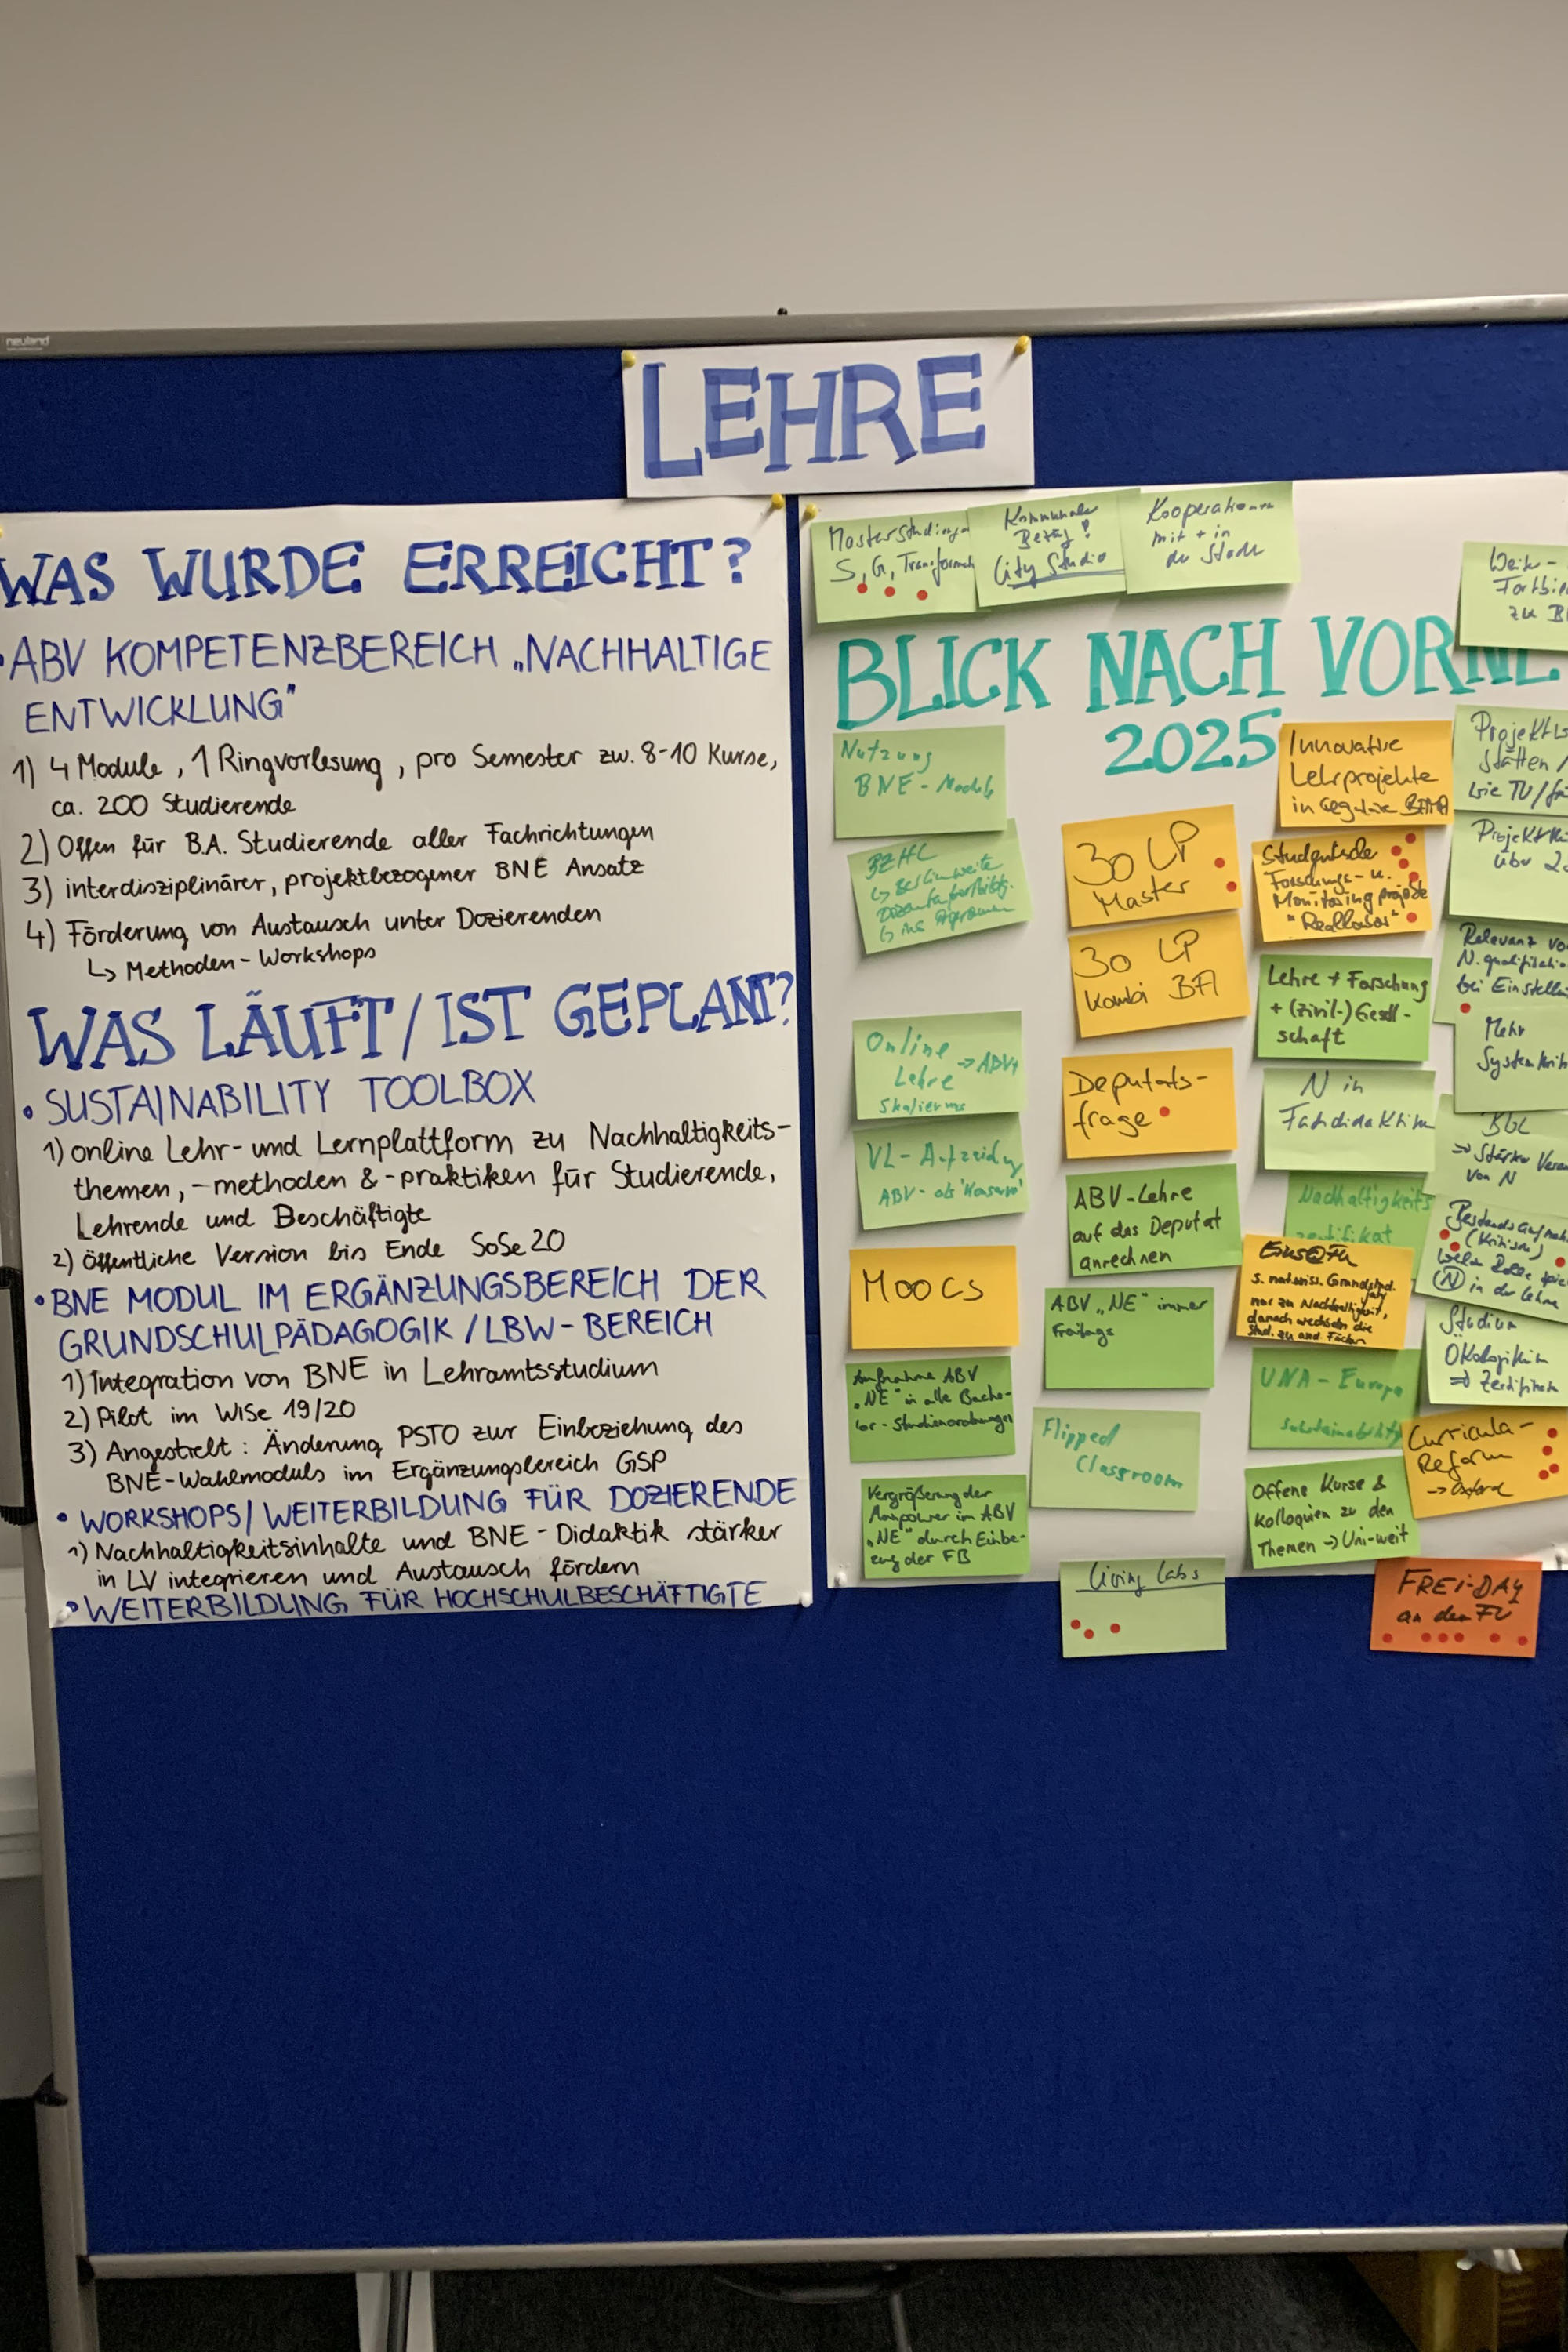 neuland
LEHRE
WAS WURDE ERREICHT?
• ABV KOMPETENZBEREICH „NACHHALTIGE
ENTWICKLUNG"
1) 4 Module, 1 Ringvorlesung, pro Semester zw. 8-10 Kurse,
ca. 200 Studierende
2) Offen für B.A. Studierende aller Fachrichtungen
3) interdisziplinärer, projektbezogener BNE Ansatz
4) Förderung von Austausch unter Dozierenden
↳ Methoden-Workshops
WAS LÄUFT/IST GEPLANT?
• SUSTAINABILITY TOOLBOX
1) online Lehr- und Lernplattform zu Nachhaltigkeits-
themen, -methoden & -praktiken für Studierende,
Lehrende und Beschäftigte
2) öffentliche Version bis Ende SoSe 20
• BNE MODUL IM ERGÄNZUNGSBEREICH DER
GRUNDSCHULPÄDAGOGIK/LBW-BEREICH
1) Integration von BNE in Lehramtsstudium
2) Pilot im WiSe 19/20
3) Angestrebt: Änderung PSTO zur Einbeziehung des
BNE-Wahlmoduls im Ergänzungsbereich GSP
• WORKSHOPS/WEITERBILDUNG FÜR DOZIERENDE
1) Nachhaltigkeitsinhalte und BNE-Didaktik stärker
in LV integrieren und Austausch fördern
• WEITERBILDUNG FÜR HOCHSCHULBESCHÄFTIGTE
Masterstudiengang
S, G, Transformat
Kommunaler
Bezug!
City Studio
Kooperationen
mit + in
der Stadt
Weiter-
Fortbil
zu B
BLICK NACH VORNE
2025
Nutzung
BNE-Module
BZHL
↳ Berlinweite
↳ ins Programm
Online
Lehre → ABV
Skalierung
VL-Aufzeichng
ABV- als 'Konserve'
MOOCS
Aufnahme ABV
„NE" in alle Bache-
lor-Studienordnungen
Vergrößerung der
Manpower im ABV
„NE" durch Einbe-
zug der FB
30 LP
Master
30 LP
Kombi BA
Deputats-
frage
ABV-Lehre
auf das Deputat
anrechnen
ABV „NE" immer
Freitags
Flipped
Classroom
Living Labs
Innovative
Lehrprojekte
in
Studentische
Forschungs- u.
Monitoringprojekte
"Reallabor"
Lehre + Forschung
+ (zivil-) Gesell-
schaft
N in
Fachdidaktiken
Nachhaltigkeits
zertifikat
Eins@FU
s. natwiss. Grundstud.
nur zu Nachhaltigkeit,
danach wechseln die
Stud. zu and. Fächern
UNA-Europa
sustainability
Offene Kurse &
Kolloquien zu den
Themen → Uni-weit
Projekt
stätten /
wie TU/
Projekt
über 2
Relevanz vo
N.qualifikatio
bei Einstell
Mehr
Systemkrit
→ Stärker
von N
Bestandsaufnah
(kritisch)
welche Rolle spie
(N) in der Lehre
Studium
Ökologikum
⇒ Zertifikat
Curricula-
Reform
→
FREI-DAY
an der FU